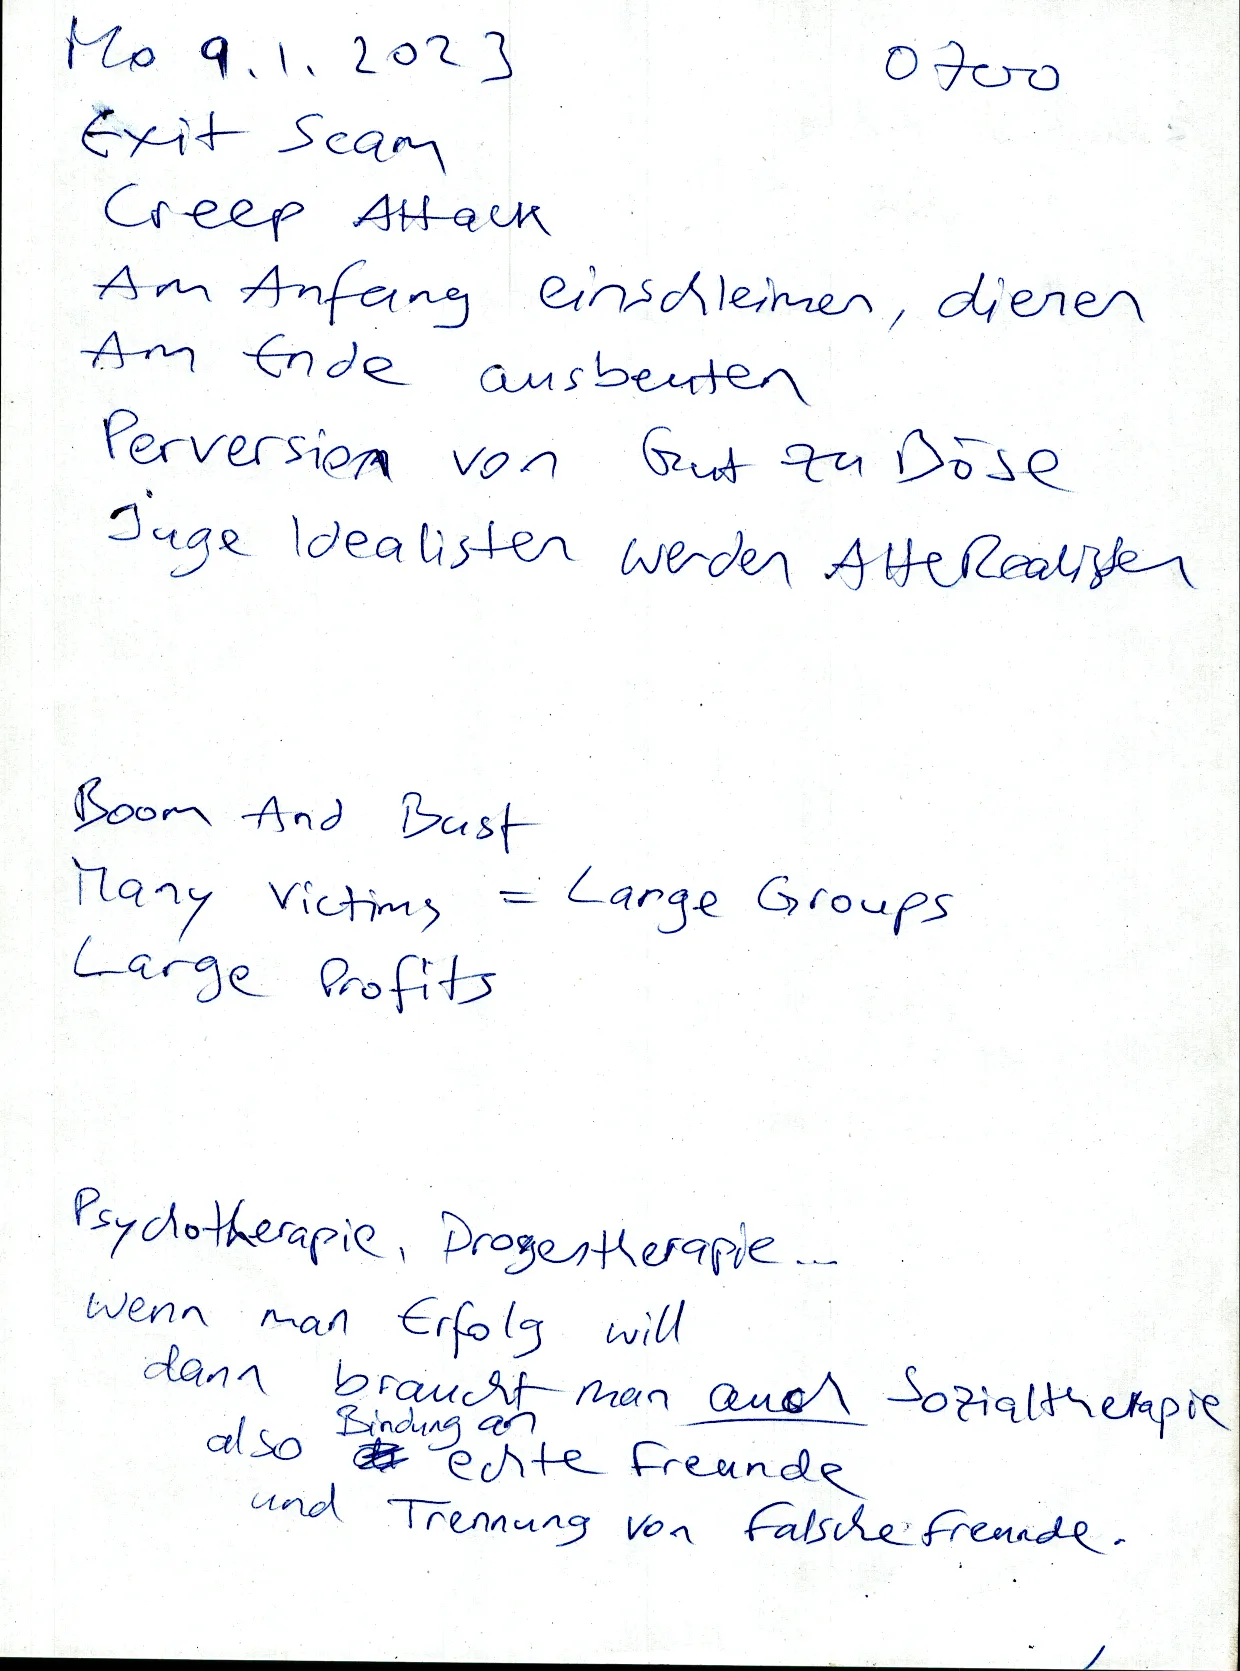 Mo 9.1.2023 0700
Exit Scam
Creep Attack
Am Anfang einschleimen, dienen
Am Ende ausbeuten
Perversion von Gut zu Böse
Juge Idealisten werden Alte Realisten
Boom And Bust
Many Victims = Large Groups
Large Profits
Psychotherapie, Drogentherapie...
wenn man Erfolg will
dann braucht man auch Sozialtherapie
also Bindung an echte Freunde
und Trennung von falsche Freunde.